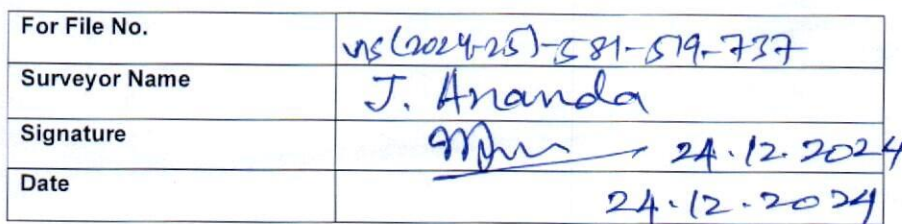 For File No. VIS(2024-25)-581-519-737
Surveyor Name J. Ananda
Signature 24.12.2024
Date 24.12.2024